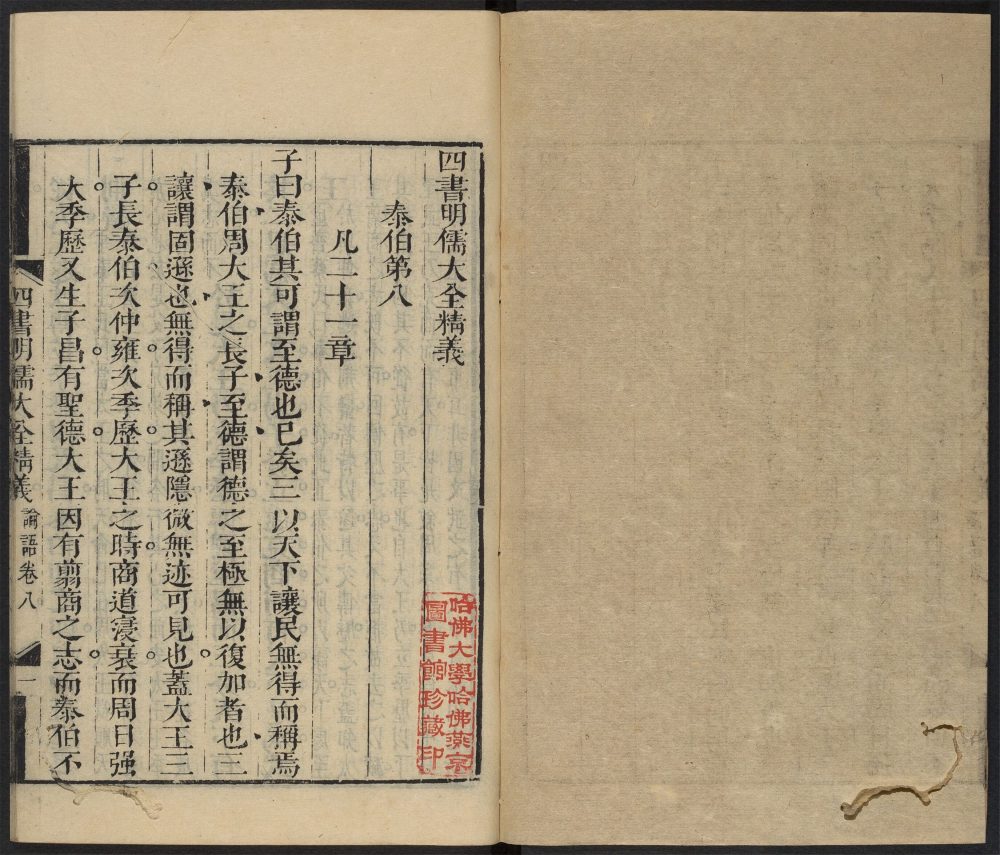 四書明儒大全精義
泰伯第八
凡二十一章
子曰泰伯其可謂至德也已矣三以天下讓民無得而稱焉
泰伯周大王之長子至德謂德之至極無以復加者也三
讓謂固遜也無得而稱其遜隱微無迹可見也蓋大王三
子長泰伯次仲雍次季歷大王之時商道寖衰而周日强
大季歷又生子昌有聖德大王因有翦商之志而泰伯不
四書明儒大全精義 論語卷八 一
哈佛大學哈佛燕京
圖書館珍藏印